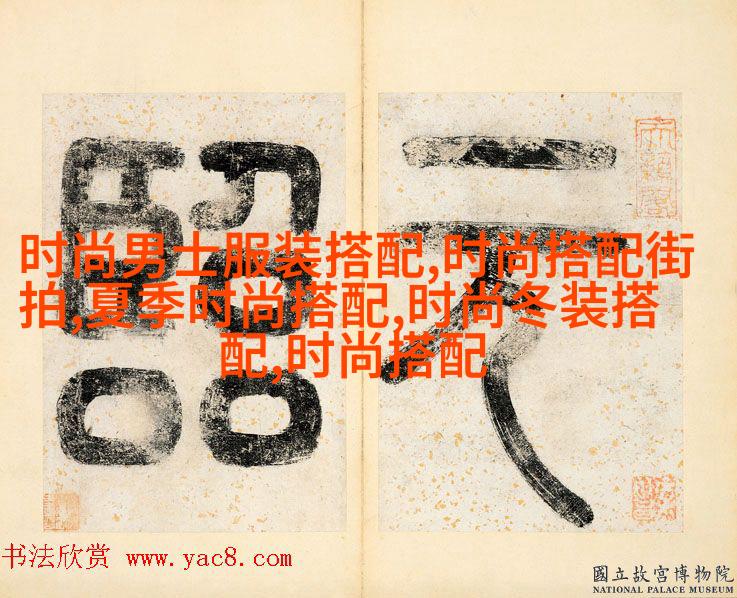 时尚男士服装搭配,时尚搭配街
拍,夏季时尚搭配,时尚冬装搭
配,时尚搭配
书法欣赏 www.yac8.com
國立故宮博物院
NATIONAL PALACE MUSEUM